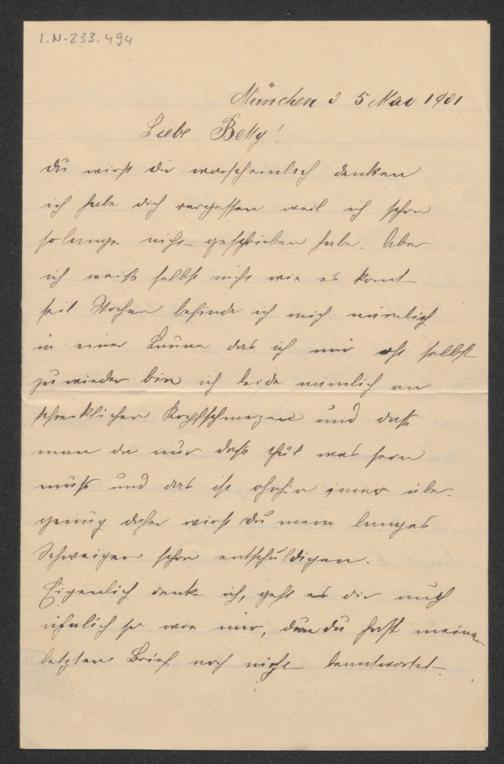 I.N-233.494
München d 5 Mai 1901
Liebe Betty!
du wirst dir warscheinlich denken
ich habe dich vergessen weil ich schon
solange nicht geschrieben habe. Aber
ich weiß selbst nicht wie es komt
seit Wochen befinde ich mich nämlich
in einer Laune das ich mir oft selbst
zuwieder bin ich leide nämlich an
schreklichen Kopfschmerzen und daß
man da nur daß thut was sein
muß und das ist ohnhin imer über-
genug daher wirst du mein langes
Schweigen schon entschuldigen.
Eigenlich denke ich, geht es dir auch
ähnlich so wie mir, den du hast meinen
letzten Brief noch nicht beantwortet.